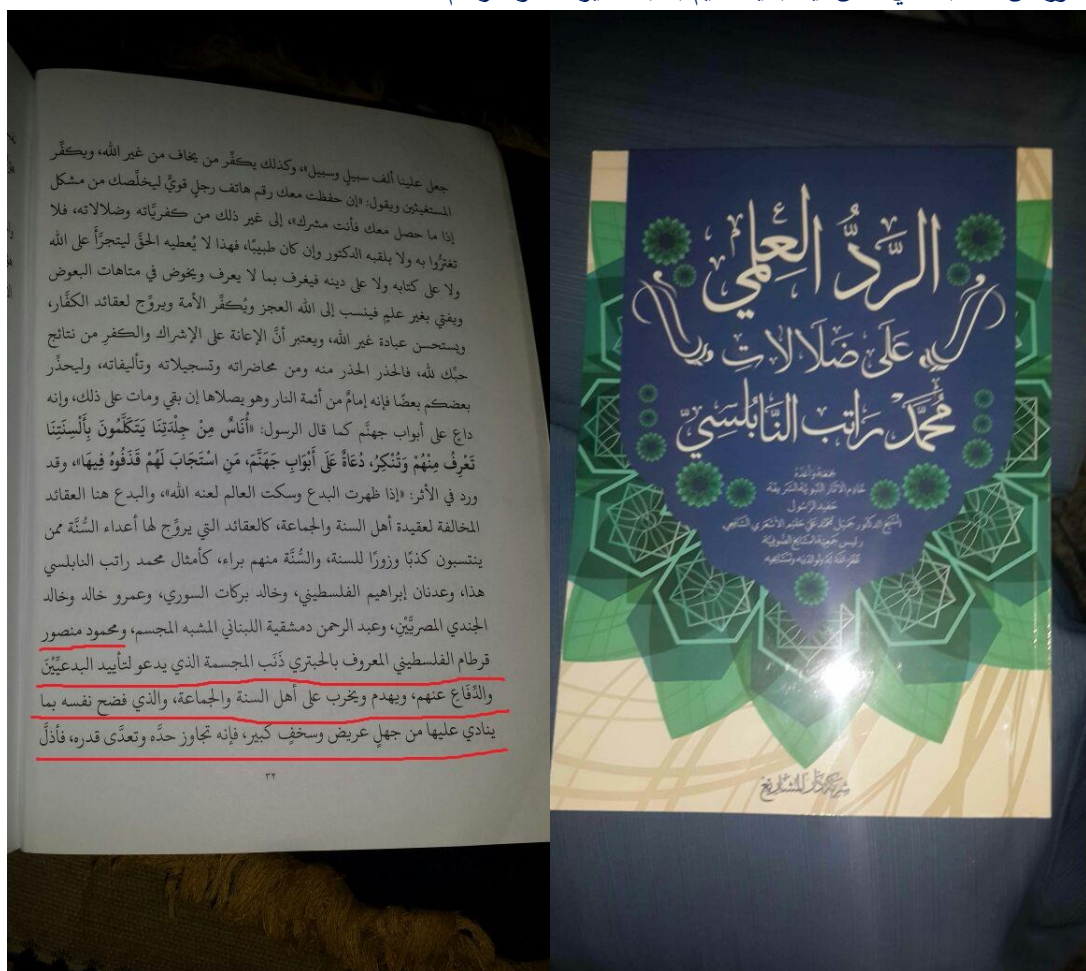 جعل علينا ألف سبيلٍ وسبيل»، وكذلك يكفِّر من يخاف من غير الله، ويكفِّر
المستغيثين ويقول: «إن حفظت معك رقم هاتف رجلٍ قويٍّ ليخلِّصك من مشكل
إذا ما حصل معك فأنت مشرك»، إلى غير ذلك من كفريَّاته وضلالاته، فلا
تغترُّوا به ولا بلقبه الدكتور وإن كان طبيبًا، فهذا لا يُعطيه الحقَّ ليتجرَّأَ على الله
ولا على كتابه ولا على دينه فيغرف بما لا يعرف ويخوض في متاهات البعوض
ويفتي بغير علمٍ فينسب إلى الله العجز ويُكفِّر الأمة ويروِّج لعقائد الكفَّار،
ويستحسن عبادة غير الله، ويعتبر أنَّ الإعانة على الإشراك والكفرِ من نتائج
حبِّك لله، فالحذر الحذر منه ومن محاضراته وتسجيلاته وتأليفاته، وليحذِّر
بعضكم بعضًا فإنه إمامٌ من أئمة النار وهو يصلاها إن بقي ومات على ذلك، وإنه
داعٍ على أبواب جهنَّم كما قال الرسول: «أُنَاسٌ مِنْ جِلْدَتِنَا يَتَكَلَّمُونَ بِأَلْسِنَتِنَا
تَعْرِفُ مِنْهُمْ وَتُنْكِرُ، دُعَاةٌ عَلَى أَبْوَابِ جَهَنَّمَ، مَنِ اسْتَجَابَ لَهُمْ قَذَفُوهُ فِيهَا»، وقد
ورد في الأثر: «إذا ظهرت البدع وسكت العالم لعنه الله»، والبدع هنا العقائد
المخالفة لعقيدة أهل السنة والجماعة، كالعقائد التي يروِّج لها أعداء السُّنَّة ممن
ينتسبون كذبًا وزورًا للسنة، والسُّنَّة منهم براء، كأمثال محمد راتب النابلسي
هذا، وعدنان إبراهيم الفلسطيني، وخالد بركات السوري، وعمرو خالد وخالد
الجندي المصريَّيْن، وعبد الرحمن دمشقية اللبناني المشبه المجسم، ومحمود منصور
قرطام الفلسطيني المعروف بالحبتري ذَنَب المجسمة الذي يدعو لتأييد البدعيِّيْنَ
والدِّفَاعِ عنهم، ويهدم ويخرب على أهل السنة والجماعة، والذي فضح نفسه بما
ينادي عليها من جهلٍ عريض وسخفٍ كبير، فإنه تجاوز حدَّه وتعدَّى قدره، فأذلَّ
٣٢
الرَّدُّ العِلْمِي
عَلَى ضَلَالَاتِ
مُحَمَّد رَاتب النَّابُلسِيّ
جمعه وأعده
خادم الآثار النبوية الشريفة
حفيد الرسول
الشيخ الدكتور جميل محمد علي حليم الأشعري الشافعي
رئيس جمعية المشايخ الصوفية
غفر الله له ولوالديه ومشايخه
شركة دار المشاريع